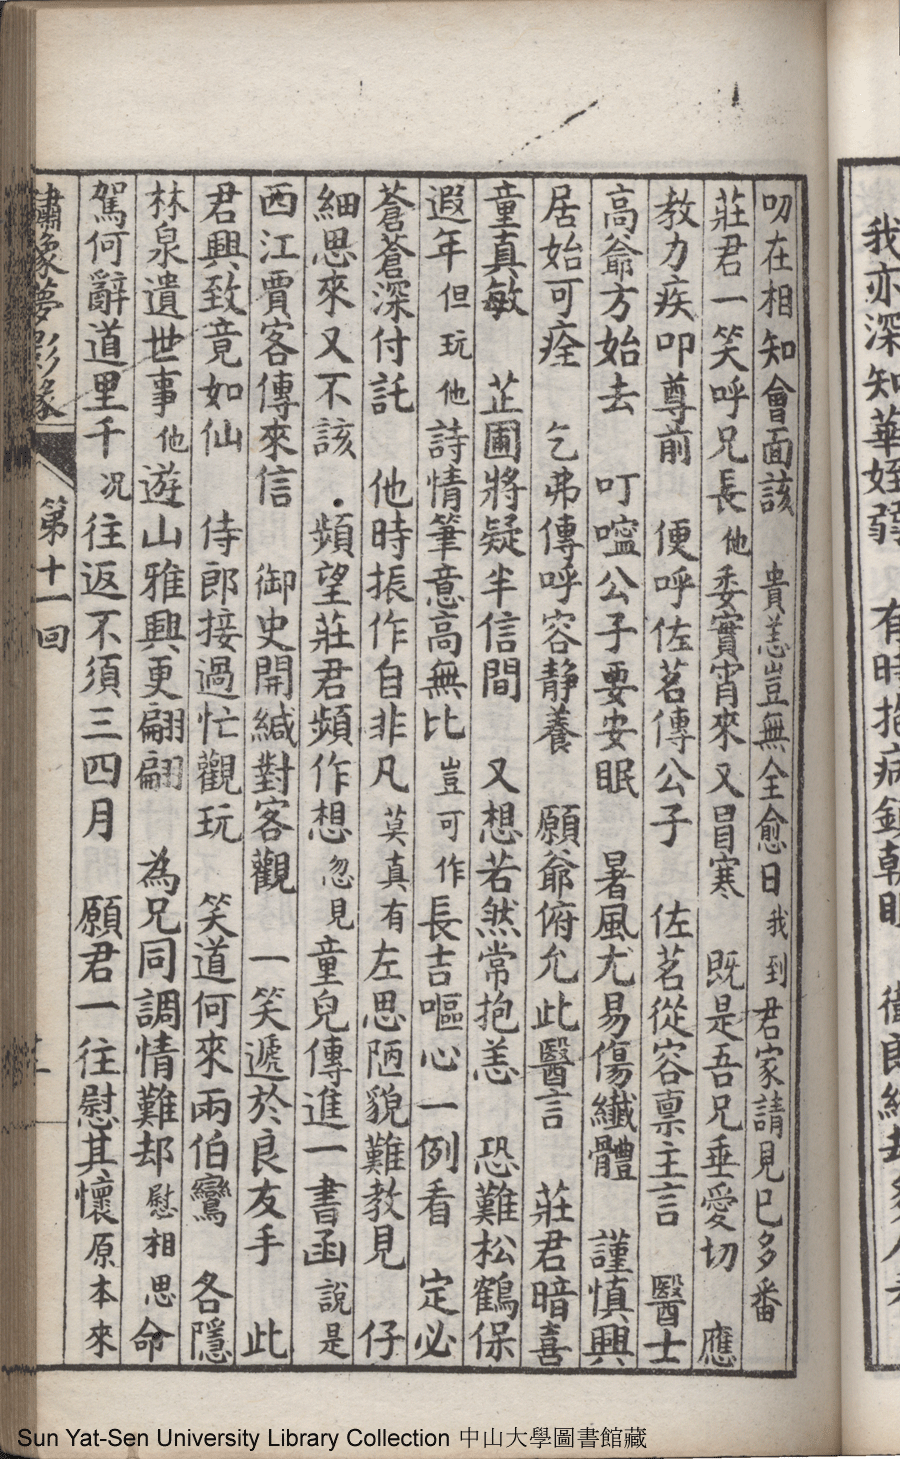 我亦深知華姪弱 有時抱病
叨在相知會面該 貴恙豈無全愈日我到君家請見已多番
莊君一笑呼兄長他委實宵來又冒寒 既是吾兄垂愛切 應
教力疾叩尊前 便呼佐茗傳公子 佐茗從容稟主言 醫士
高爺方始去 叮嚀公子要安眠 暑風尤易傷纖體 謹慎興
居始可痊 乞弗傳呼容靜養 願爺俯允此醫言 莊君暗喜
童真敏 芷圃將疑半信間 又想若然常抱恙 恐難松鶴保
遐年但玩他詩情筆意高無比豈可作長吉嘔心一例看 定必
蒼蒼深付託 他時振作自非凡莫真有左思陋貌難教見 仔
細思來又不該 頻望莊君頻作想忽見童兒傳進一書函說是
西江賈客傳來信 御史開緘對客觀 一笑遞於良友手 此
君興致竟如仙 侍郎接過忙觀玩 笑道何來兩伯鸞 各隱
林泉遺世事他遊山雅興更翩翩 為兄同調情難却慰相思命
駕何辭道里千况往返不須三四月 願君一往慰其懷原本來
繡像夢影緣 第十一回
Sun Yat-Sen University Library Collection 中山大學圖書館藏